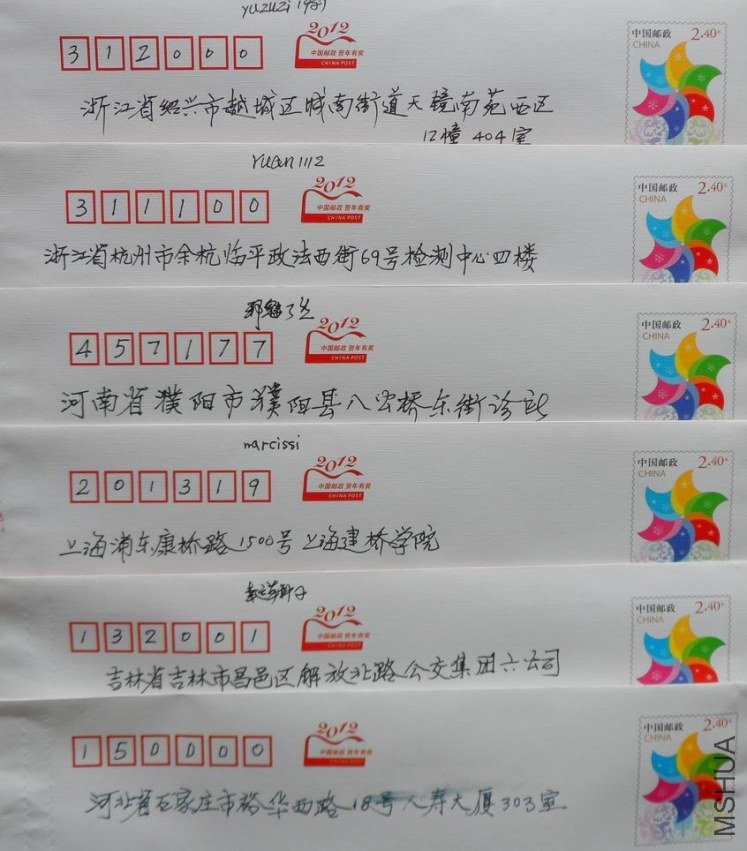 yuzuzi 1981
2012
中国邮政 贺年有奖
CHINA POST
中国邮政 2.40元
CHINA
312000
浙江省绍兴市越城区城南街道天镜南苑西区
12幢 404室
Yuan1112
2012
中国邮政 贺年有奖
CHINA POST
中国邮政 2.40元
CHINA
311100
浙江省杭州市余杭临平政法西街69号检测中心四楼
2012
中国邮政 贺年有奖
CHINA POST
中国邮政 2.40元
CHINA
457177
河南省濮阳市濮阳县八公桥东街诊所
marcissi
2012
中国邮政 贺年有奖
CHINA POST
中国邮政 2.40元
CHINA
201319
上海浦东康桥路1500号上海建桥学院
2012
中国邮政 贺年有奖
CHINA POST
中国邮政 2.40元
CHINA
132001
吉林省吉林市昌邑区解放北路公交集团六公司
2012
中国邮政 贺年有奖
CHINA POST
中国邮政 2.40元
CHINA
150000
河北省石家庄市裕华西路18号人寿大厦303室
MSHUA